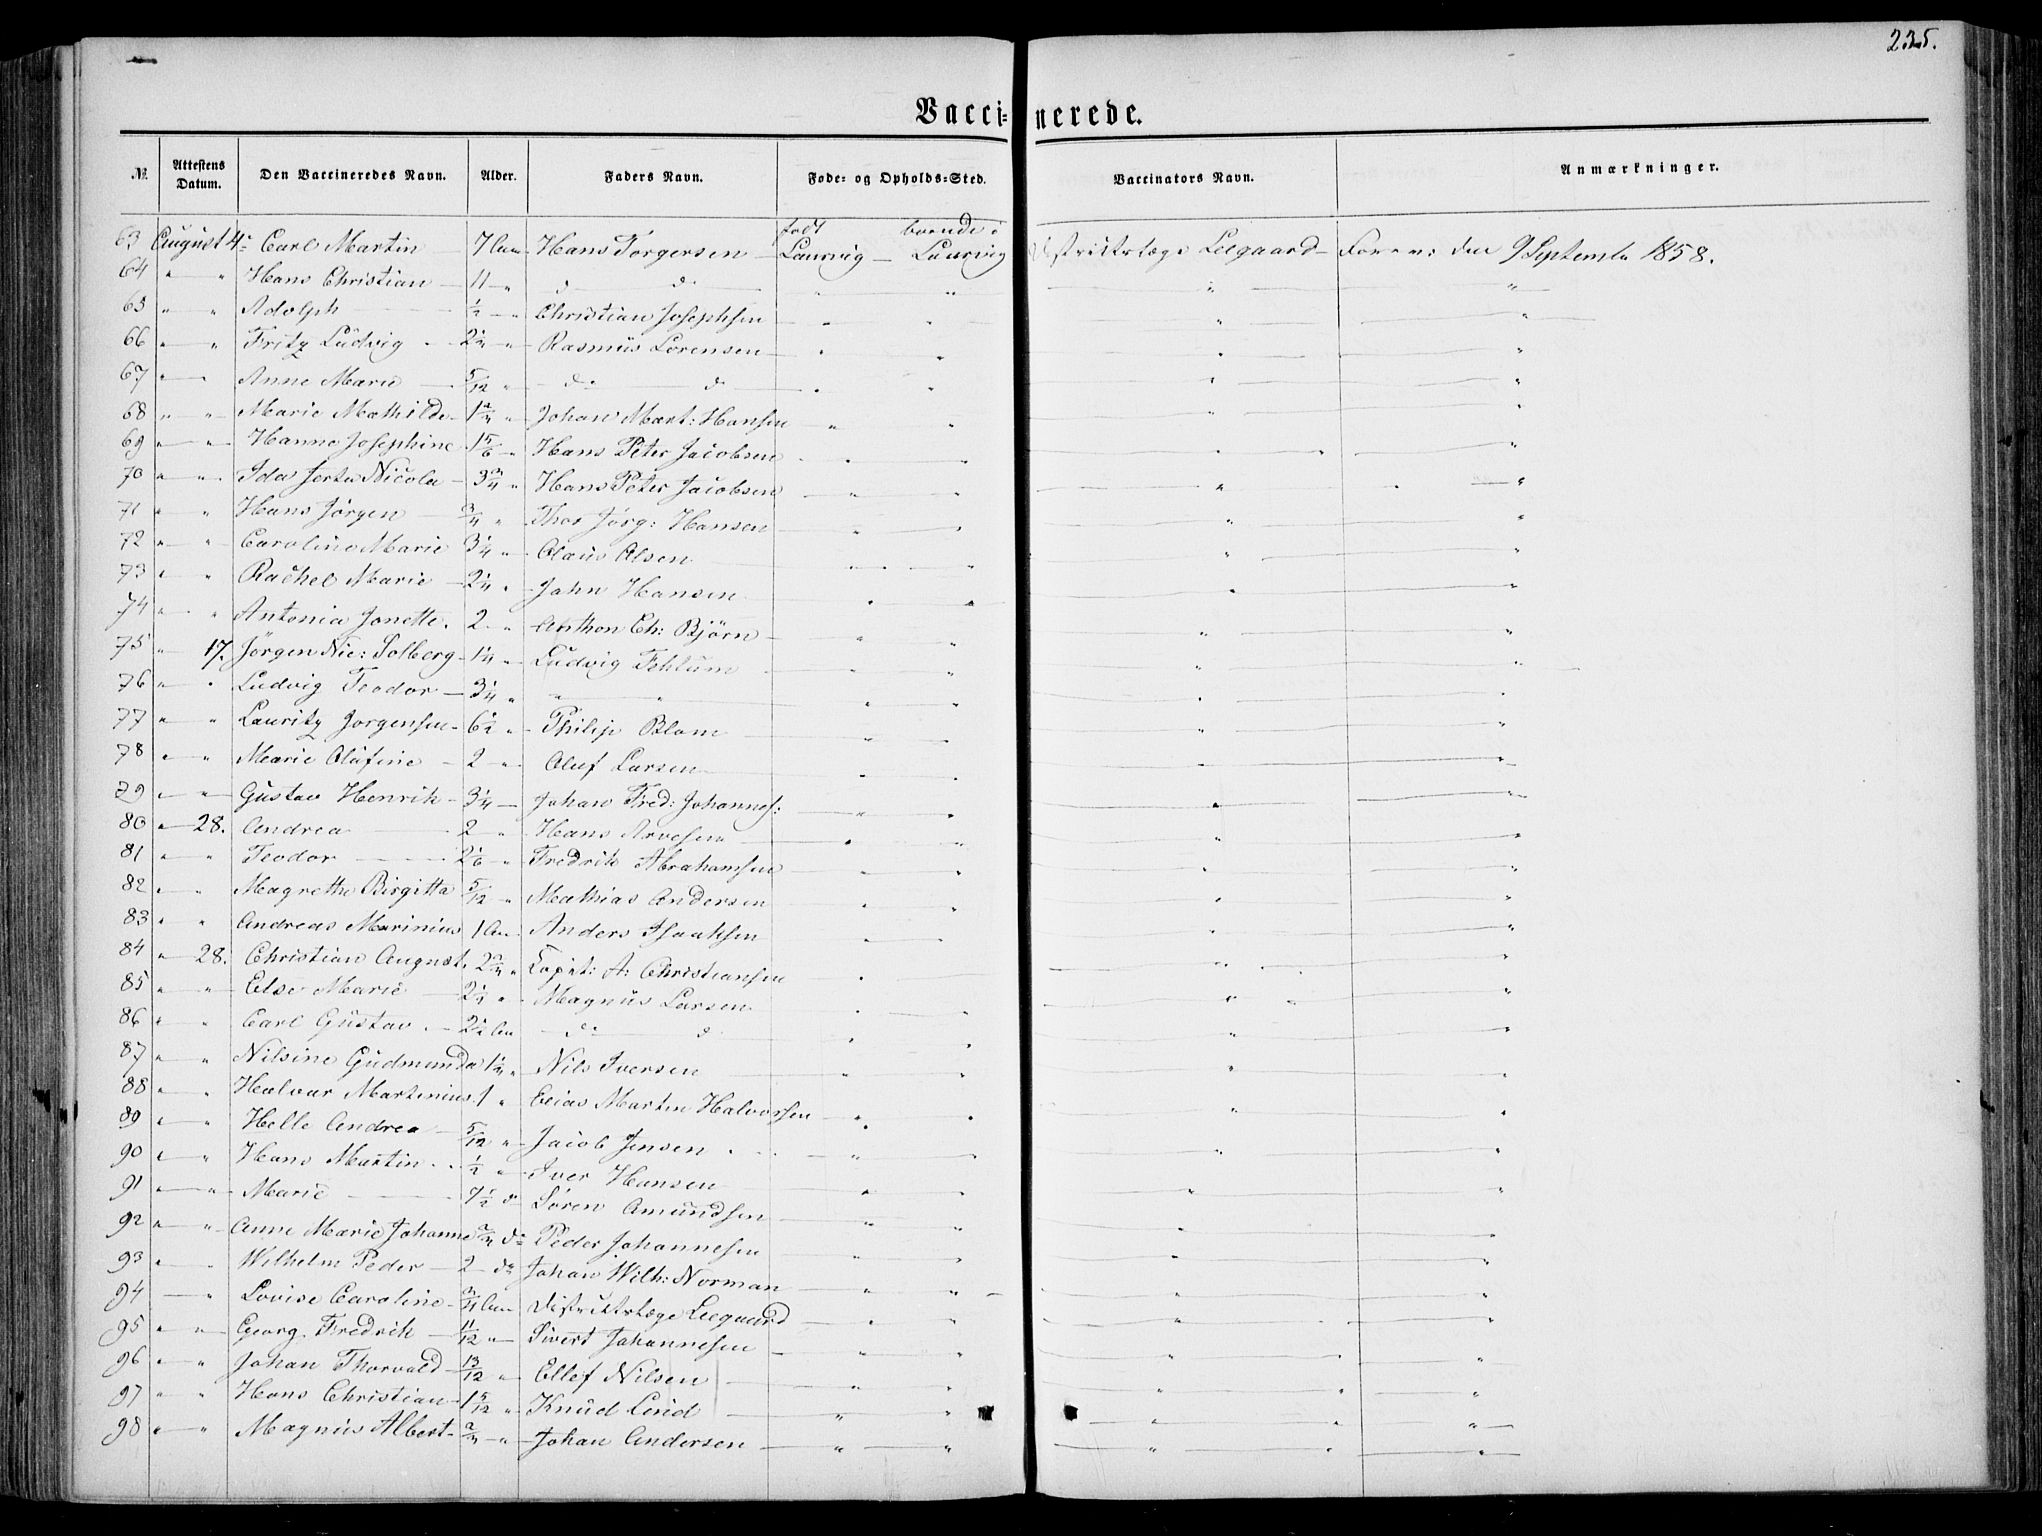 235.
Vaccinerede.
№ Attestens Datum. Den Vaccineredes Navn. Alder. Faders Navn. Føde- og Opholds-Sted. Vaccinators Navn. Anmærkninger.
født boende i
63 August 4 Carl Martin 7 Hans Torgersen Laurvig Laurvig Distriktslæge Leegaard den 9 Septembr 1858.
64 " " Hans Christian 11 " do do " " " "
65 " " Adolph 1/2 " Christian Josephsen " " " "
66 " " Fritz Ludvig 2 1/4 " Rasmus Lorensen " " " "
67 " " Anne Marie 5/12 " do do " " " "
68 " " Marie Mathilde 1 3/4 " Johan Mart: Hansen " " " "
69 " " Hanne Josephine 1 5/6 " Hans Peter Jacobsen " " " "
70 " " Ida Nicola 3 3/4 " Hans Peter Jacobsen " " " "
71 " " Hans Jørgen 3/4 " Thor Jørg: Hansen " " " "
72 " " Caroline Marie 3 1/4 " Claus Olsen " " " "
73 " " Rachel Marie 2 1/4 " John Hansen " " " "
74 " " Antonia Jonette. 2 " Anthon Ch: Bjørn " " " "
75 " 17. Jørgen Nic: Solberg 1 1/4 " Ludvig Fehlum " " " "
76 " " Ludvig Teodor 3 1/4 " " " " " " "
77 " " Lauritz Jorgensen 6 1/2 " Philip Blom " " " "
78 " " Marie Olufine 2 " Oluf Larsen " " " "
79 " " Gustav Henrik 3 1/4 Johan Fred: Johannes: " " " "
80 " 28. Andrea 2 " Hans Arvesen " " " "
81 " " Teodor 2 1/6 " Fredrik Abrahamsen " " " "
82 " " Magrethe Birgitta 5/12 " Mathias Andersen " " " "
83 " " Andreas Marinius 1 Anders Isaaksen " " " "
84 " 28. Christian August. 2 3/4 " Capt: A: Christiansen " " " "
85 " " Else Marie 2 1/4 " Magnus Larsen " " " "
86 " " Carl Gustav 2 1/2 do do " " " "
87 " " Nilsine Gudmunda 1 1/4 " Nils Iversen " " " "
88 " " Halvar Martinius 1 " Elias Martin Halvorsen " " " "
89 " " Helle Andrea 5/12 " Jacob Jensen " " " "
90 " " Hans Martin 1/2 " Iver Hansen " " " "
91 " " Marie 7 1/2 do Søren Amundsen " " " "
92 " " Anne Marie Johanne 3/4 do Peder Johannesen " " " "
93 " " Wilhelm Peder 2 do Johan Wilh: Norman " " " "
94 " Lovise Caroline 3/4 Distriktslæge Leegaard " " " "
95 " " Georg Fredrik 11/12 " Sivert Johannesen " " " "
96 " " Johan Thorvald 13/12 " Ellef Nilsen " " " "
97 " " Hans Christian 1 5/12 " Knud Lind " " " "
98 " " Magnus Albert 3/4 " Johan Andersen " " " "